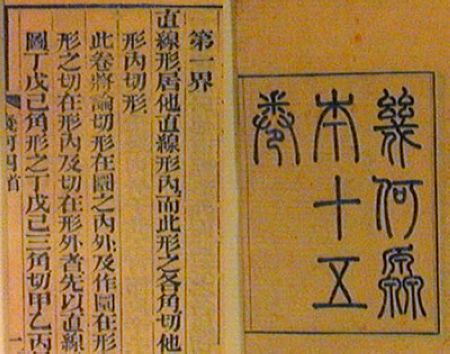 幾何原
本十五
卷
第一界
直線形居他直線形內而此形之各角切他
形內切形
此卷將論切形在圖之內外及作圖在形
形之切在形內及切在形外者先以直線
圖丁戊己角形之丁戊己三角切甲乙丙
幾何四首 一